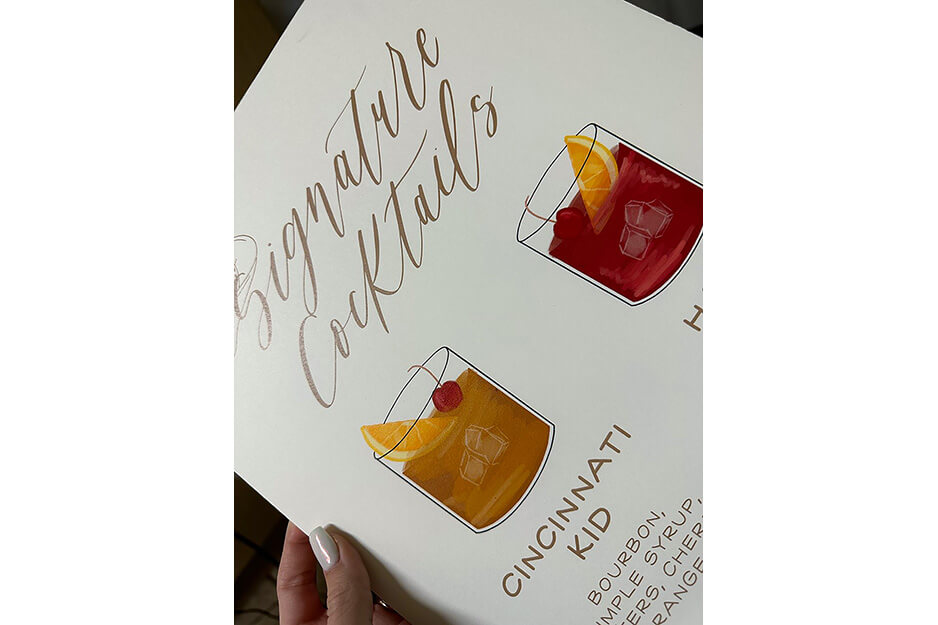 Signature
Cocktails
CINCINNATI
KID
BOURBON,
MPLE SYRUP,
ERS, CHER
RANGE